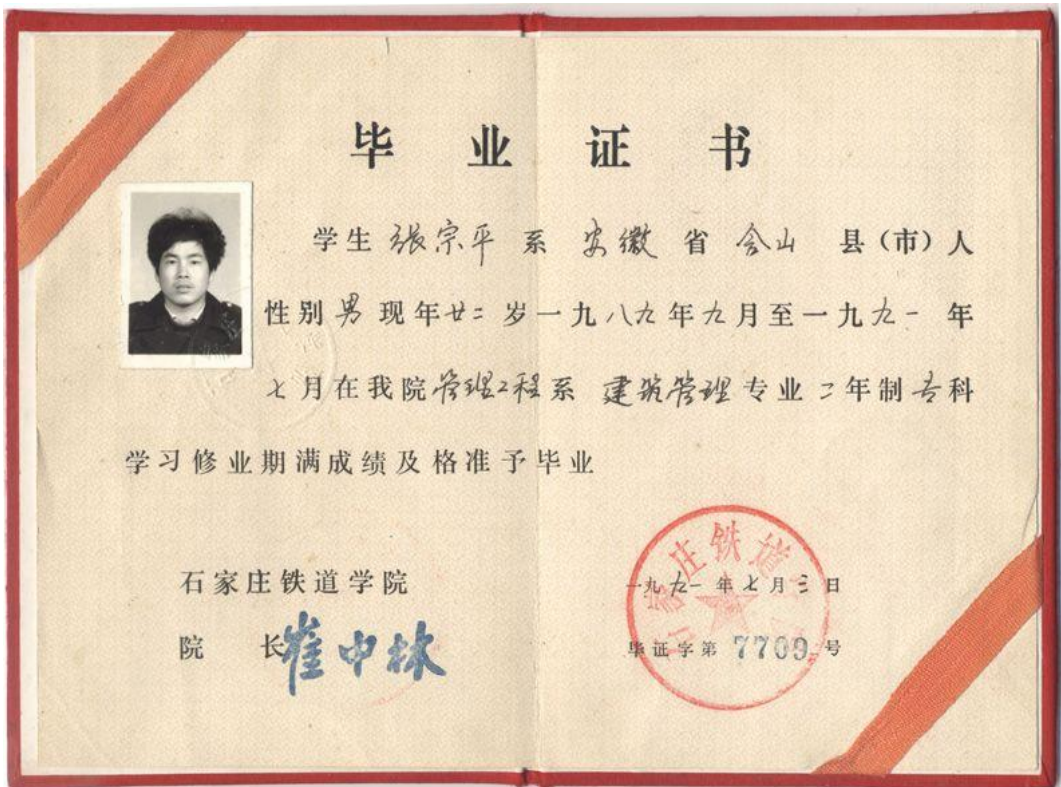 毕业证书
学生 张宗平 系 安徽 省 含山 县（市）人
性别 男 现年 廿二 岁一九八九年九月至一九九一 年
七月在我院管理工程系 建筑管理 专业 二年制 专科
学习修业期满成绩及格准予毕业
石家庄铁道学院
院 长 崔中林
一九九一年七月三日
毕证字第 7709 号
石家庄铁道学院